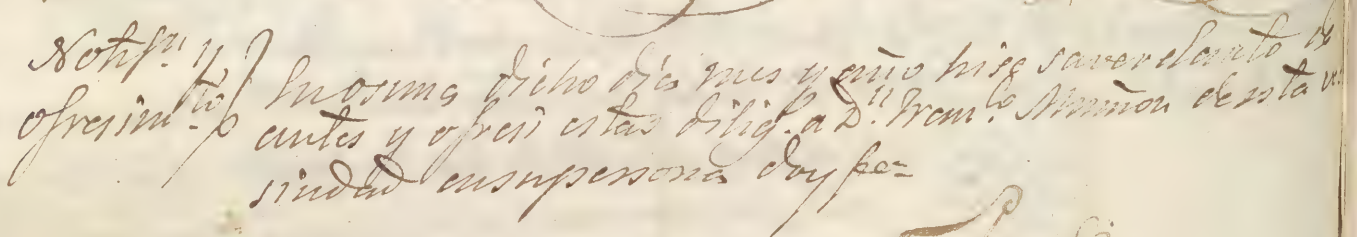 Notifn. y
ofresimto.
En osuna dicho dia mes y año hise saver el auto de
antes y ofresi estas diliga. a Dn. Franco. Muñon de esta
siudad en su persona doy fee=